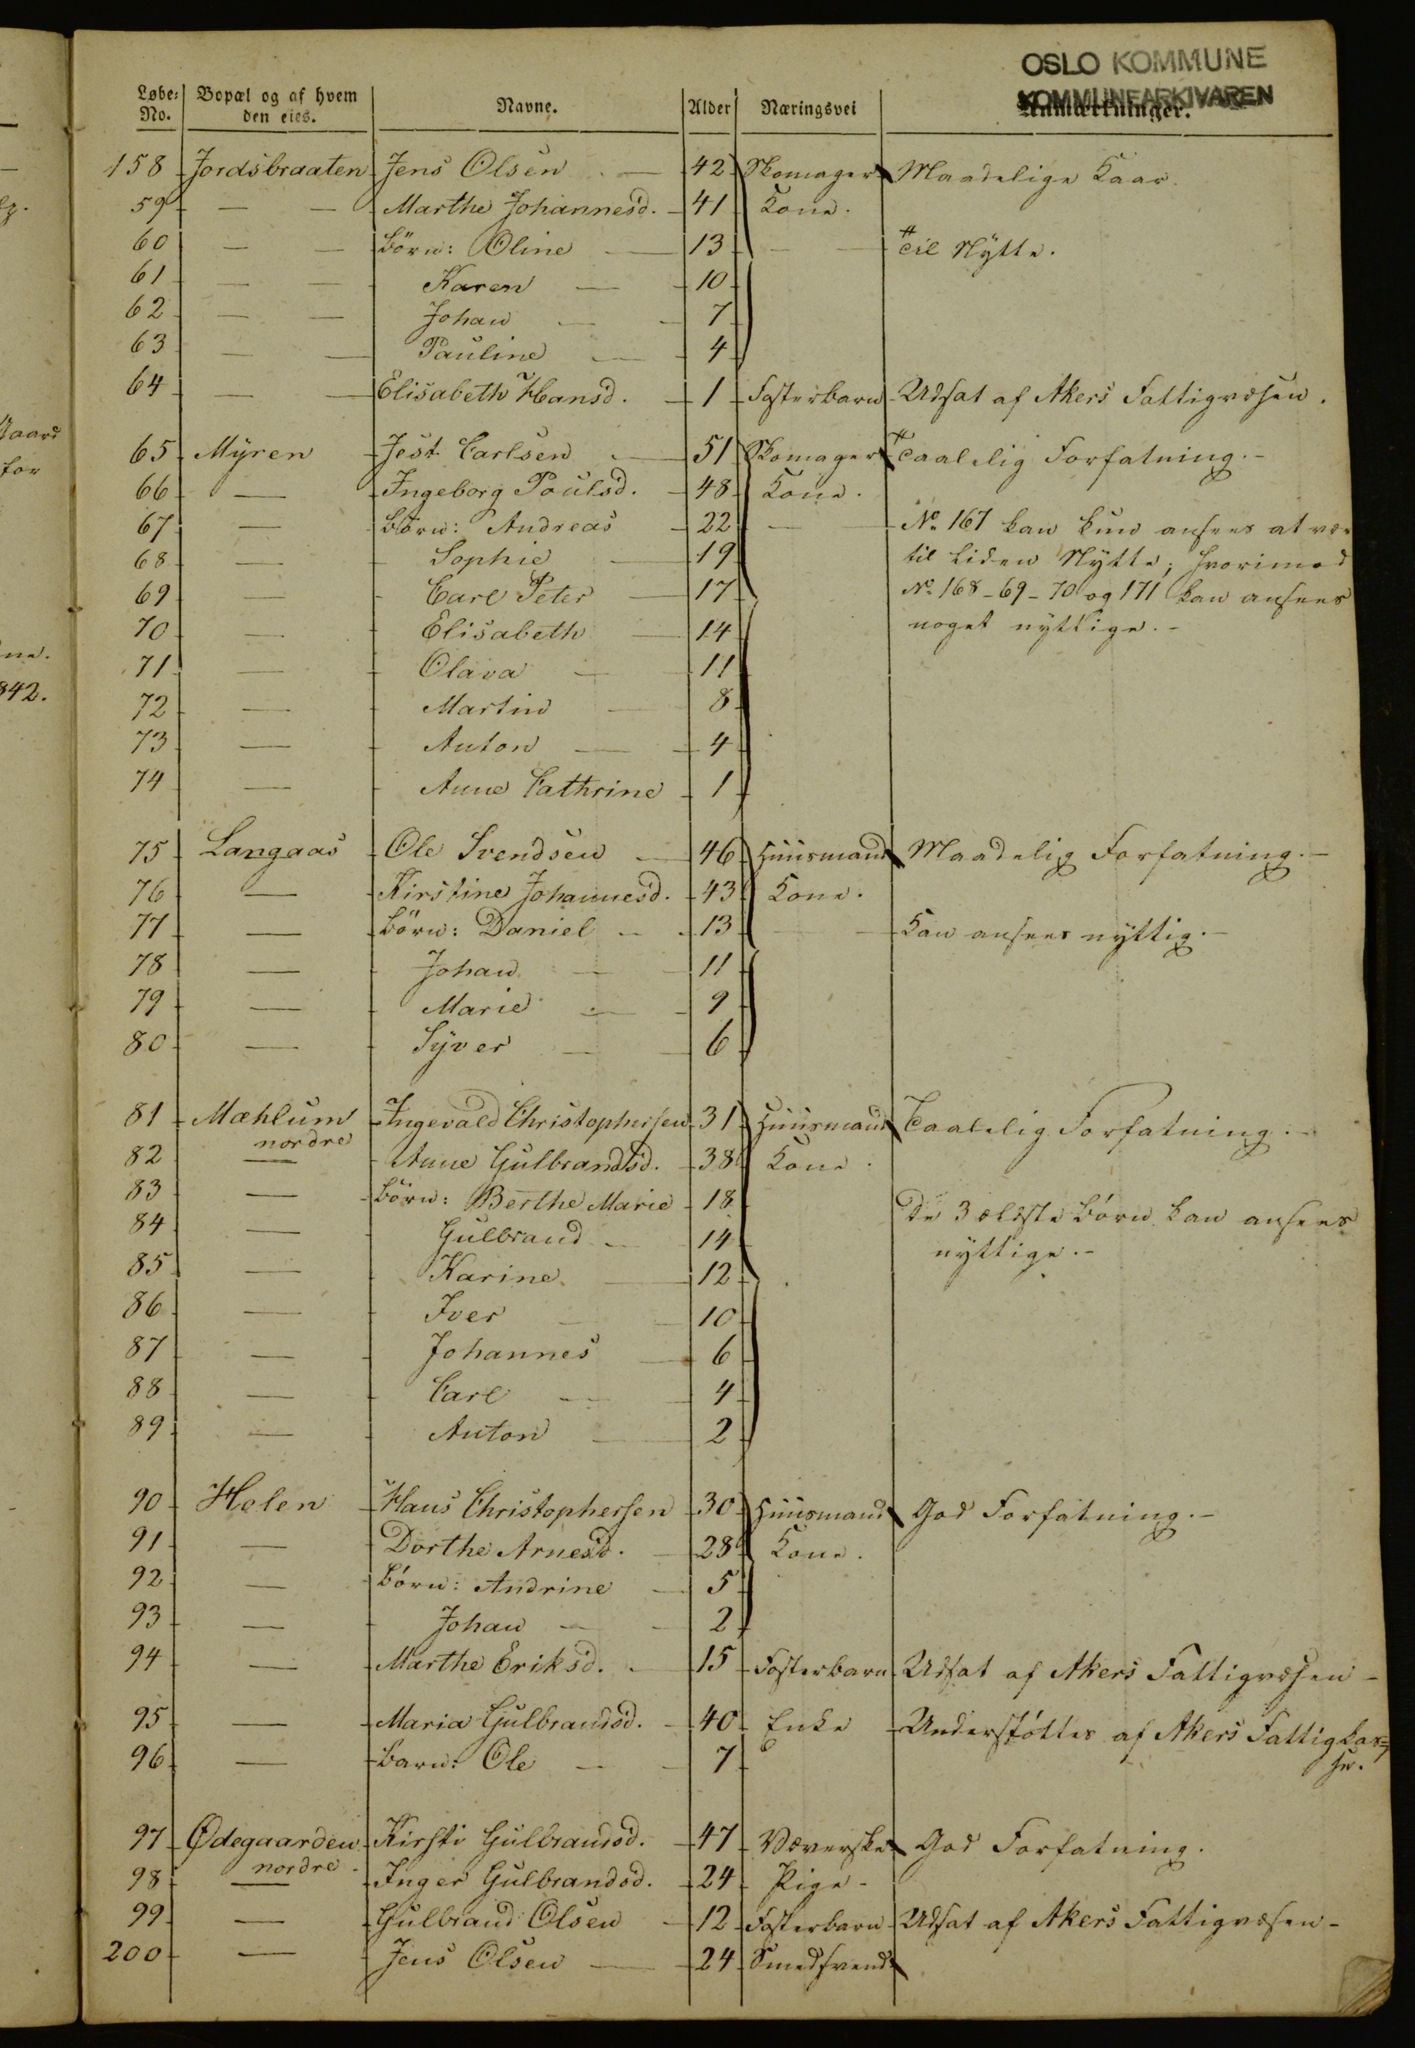 OSLO KOMMUNE
KOMMUNEARKIVAREN
Løbe-No. Bopæl og af hvem den eies. Navne. Alder Næringsvei Anmærkninger.
158 Jordsbraaten Jens Olsen — 42 Skomager Maadelige Kaar.
59 — — Marthe Johannesd. - 41 Kone.
60 — — Börn: Oline — 13 — — Til Nÿtte.
61 — — Karen — 10
62 — — Johan — 7
63 — — Pauline — 4
64 — — Elisabeth Hansd. - 1 Fosterbarn Udsat af Akers Fattigvæsen.
65 Mÿren Jest Carlsen — 51 Skomager Taalelig Forfatning.-
66 — Ingeborg Poulsd. - 48 Kone.
67 — Börn: Andreas - 22 — No 167 kan kun ansees at være
68 — Sophie — 19 til liden Nÿtte; hvorimod
69 — Carl Peter — 17 No 168-69-70 og 171 kan ansees
70 — Elisabeth — 14 noget nyttige.-
71 — Olava — 11
72 — Martin — 8
73 — Anton — 4
74 — Anne Cathrine 1
75 Langaas Ole Svendsen — 46 Huusmand Maadelig Forfatning.-
76 — Kirstine Johannesd. 43 Kone.
77 — Börn: Daniel - 13 — — Kan ansees nyttig.-
78 — Johan — 11
79 — Marie — 9
80 — Sÿver — 6
81 Mæhlum Ingevald Christophersen 31 Huusmand Taalelig Forfatning.-
nordre
82 — Anne Gulbrandsd. 38 Kone.
83 — Börn: Berthe Marie 18 De 3 ældste börn kan ansees
84 — Gulbrand — 14 nyttige.-
85 — Karine — 12
86 — Iver — 10
87 — Johannes — 6
88 — Carl — 4
89 — Anton — 2
90 Holen Hans Christophersen 30 Huusmand God Forfatning.-
91 — Dorthe Arnesd. — 28 Kone.
92 — Börn: Andrine — 5
93 — Johan — 2
94 — Marthe Eriksd. - 15 Fosterbarn Udsat af Akers Fattigvæsen -
95 — Maria Gulbrandsd. - 40 Enke Understöttes af Akers Fattigkas=
96 — Barn: Ole — 7 se.
97 Ødegaarden Kirsti Gulbrandsd. 47 Væverske God Forfatning.
nordre -
98 — Inger Gulbrandsd. 24 Pige -
99 — Gulbrand Olsen - 12 Fosterbarn Udsat af Akers Fattigvæsen -
200 — Jens Olsen — 24 Smedsvend
Gaard
for
842.